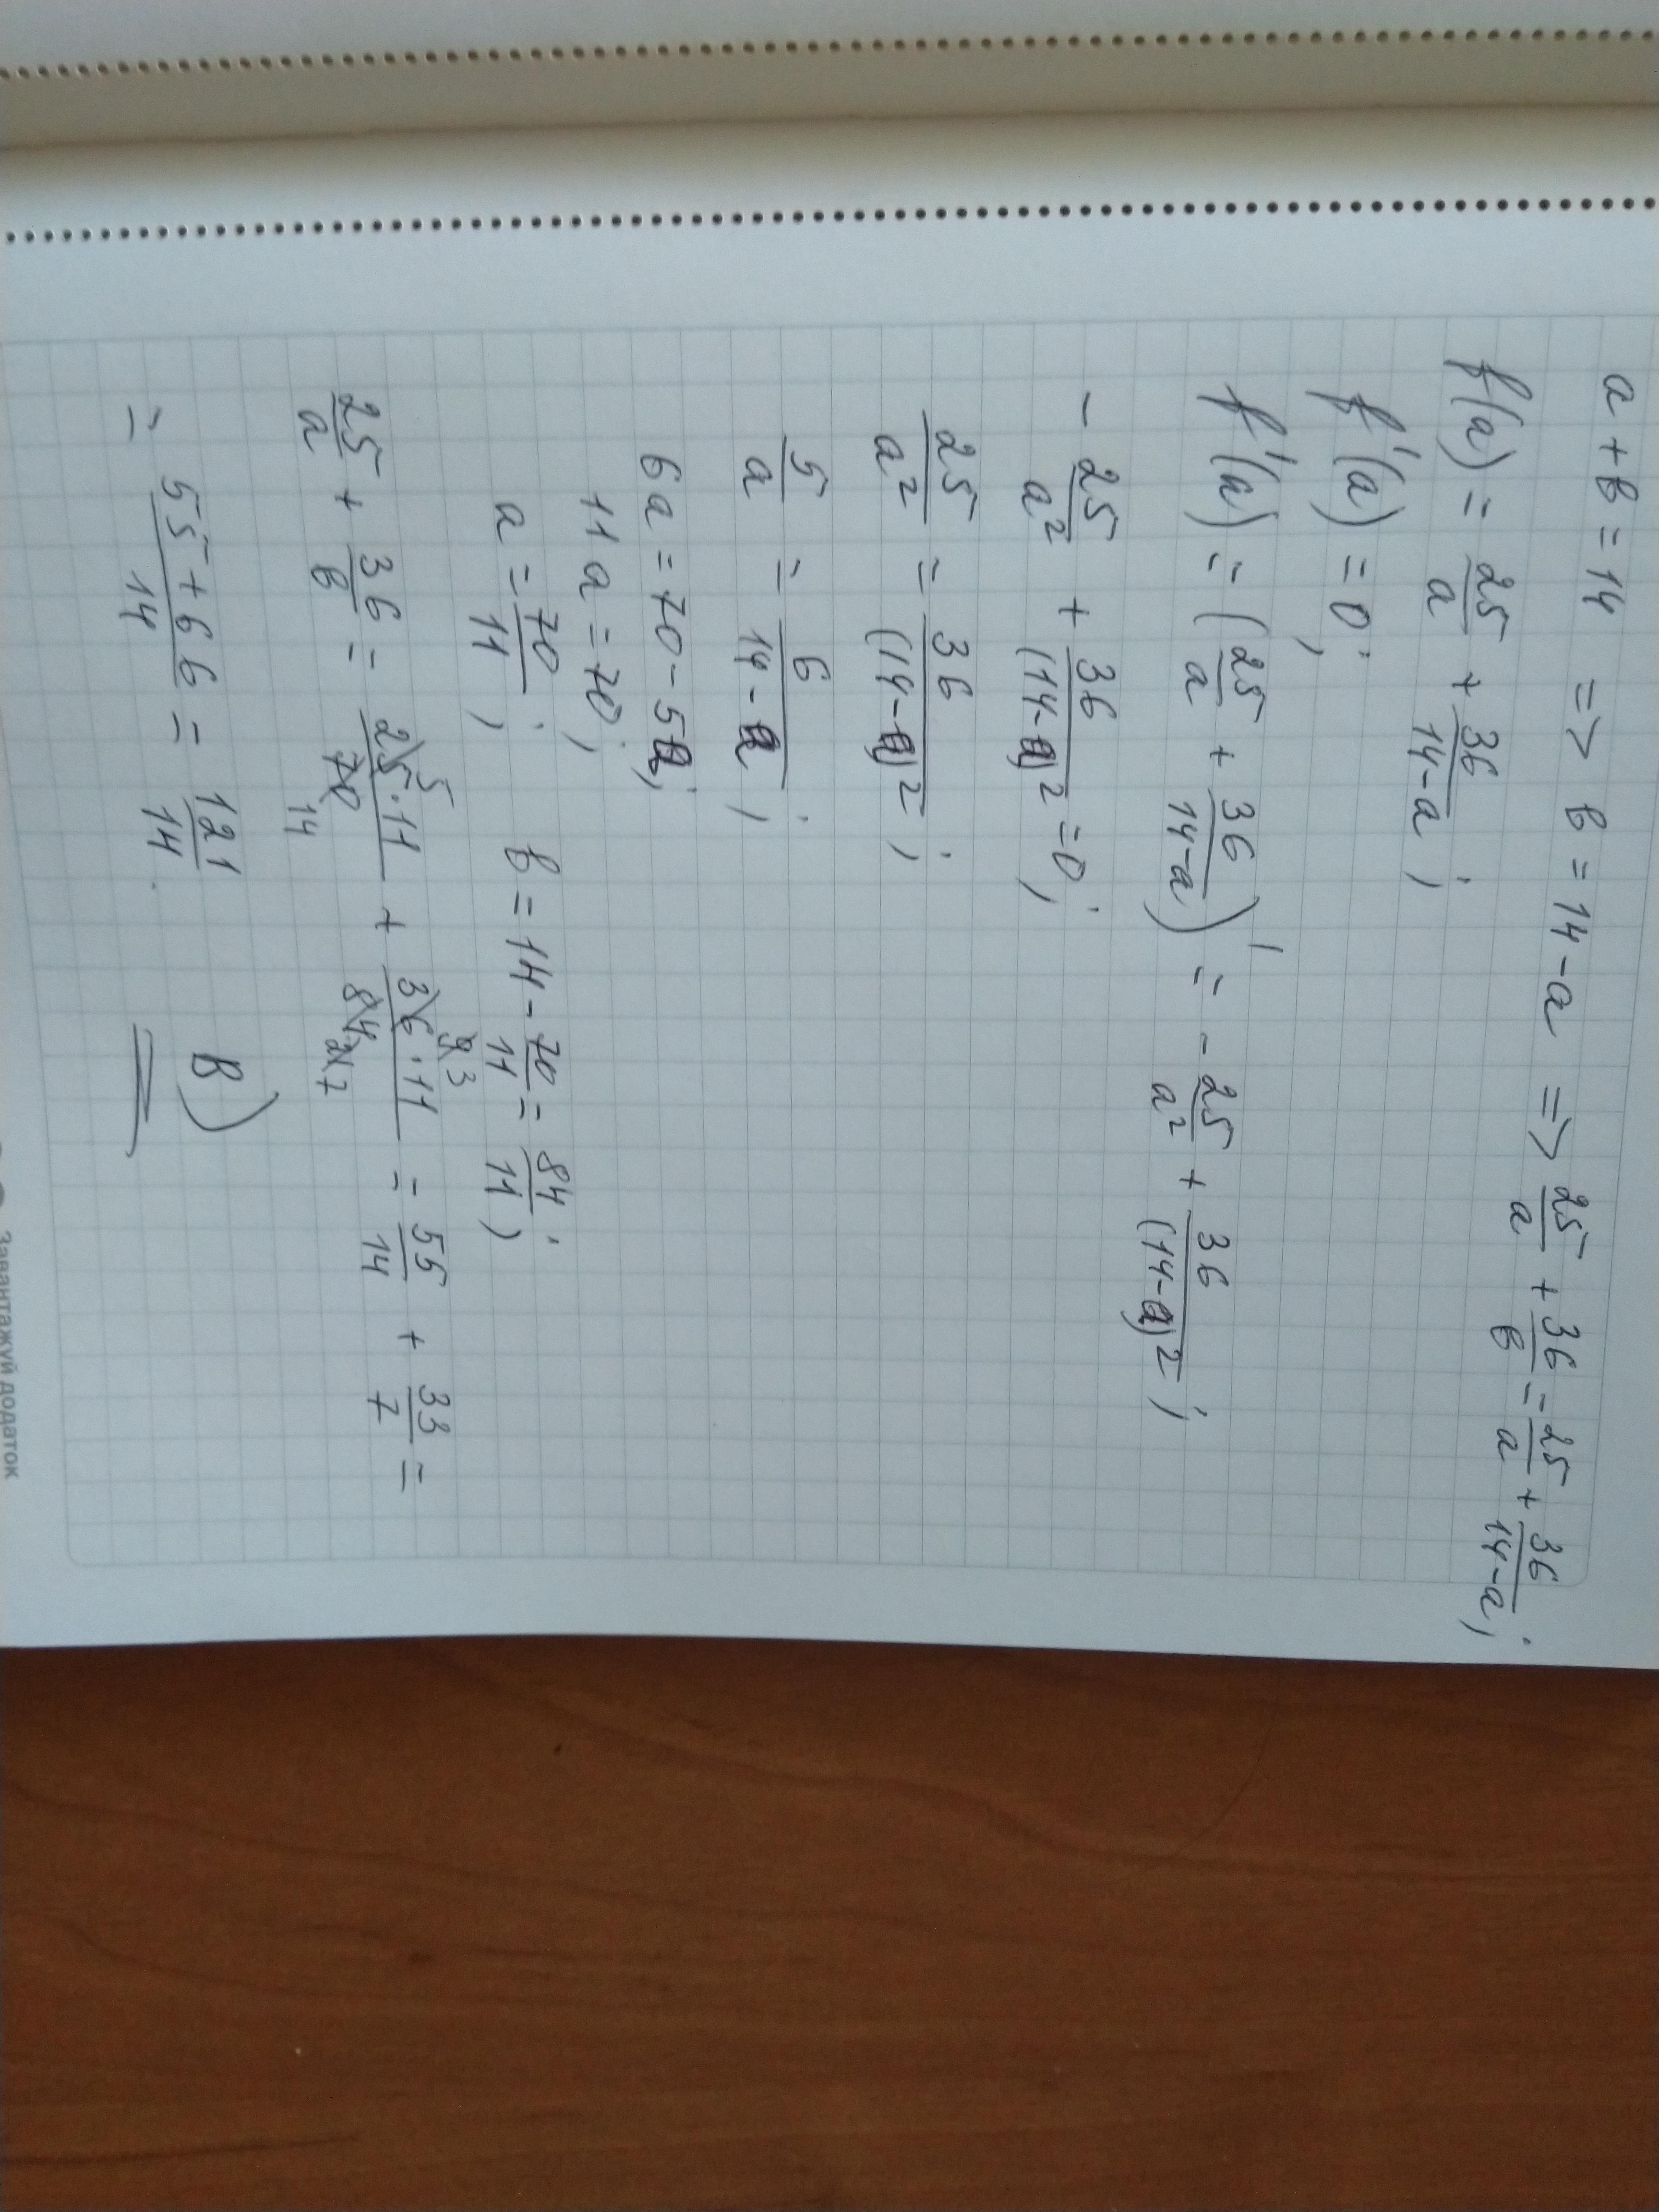 a + b = 14 => b = 14 - a => 25/a + 36/b = 25/a + 36/(14-a);
f(a) = 25/a + 36/(14-a);
f'(a) = 0;
f'(a) = (25/a + 36/(14-a))' = -25/a² + 36/(14-a)²;
-25/a² + 36/(14-a)² = 0;
25/a² = 36/(14-a)²;
5/a = 6/(14-a);
6a = 70 - 5a;
11a = 70;
a = 70/11; b = 14 - 70/11 = 84/11;
25/a + 36/b = 25·11/70 + 36·11/84 = 55/14 + 33/7 =
5 14 9 3 21 7
= (55+66)/14 = 121/14. B)
Завантажуй додаток